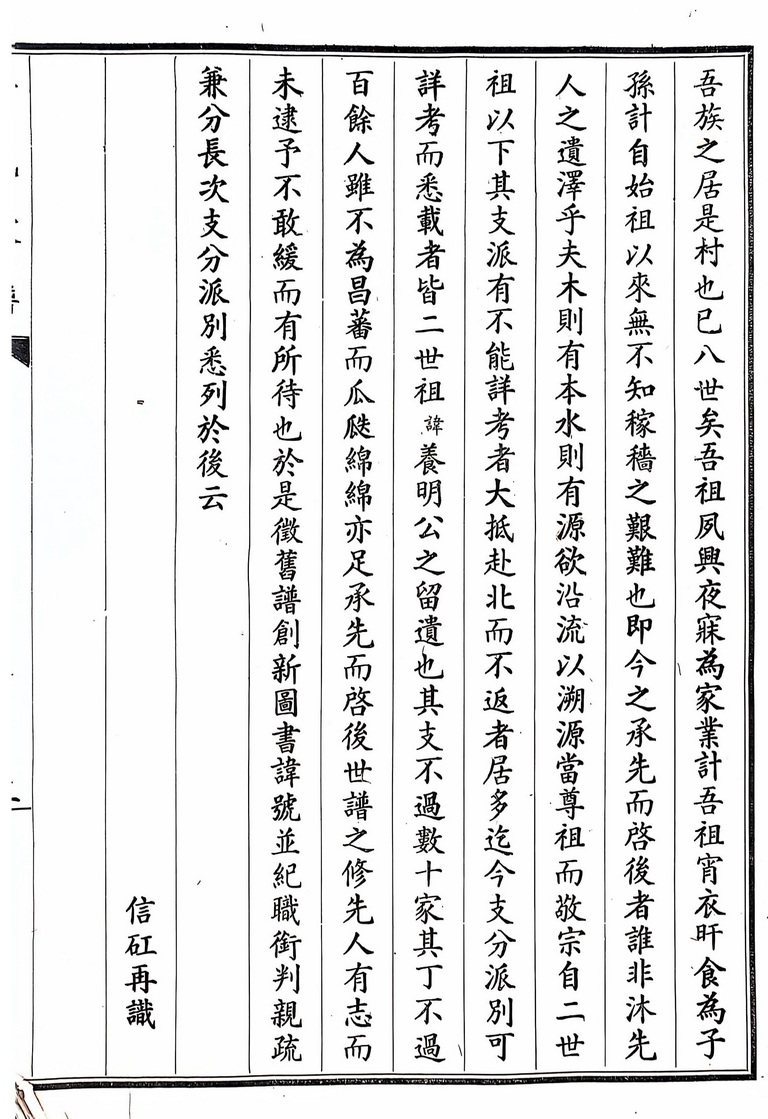 吾族之居是村也已八世矣吾祖夙興夜寐為家業計吾祖宵衣旰食為子
孫計自始祖以來無不知稼穡之艱難也即今之承先而啓後者誰非沐先
人之遺澤乎夫木則有本水則有源欲沿流以溯源當尊祖而敬宗自二世
祖以下其支派有不能詳考者大抵赴北而不返者居多迄今支分派別可
詳考而悉載者皆二世祖諱養明公之留遺也其支不過數十家其丁不過
百餘人雖不為昌蕃而瓜瓞綿綿亦足承先而啓後世譜之修先人有志而
未逮予不敢緩而有所待也於是徵舊譜創新圖書諱號並紀職銜判親疏
兼分長次支分派別悉列於後云
信矼再識